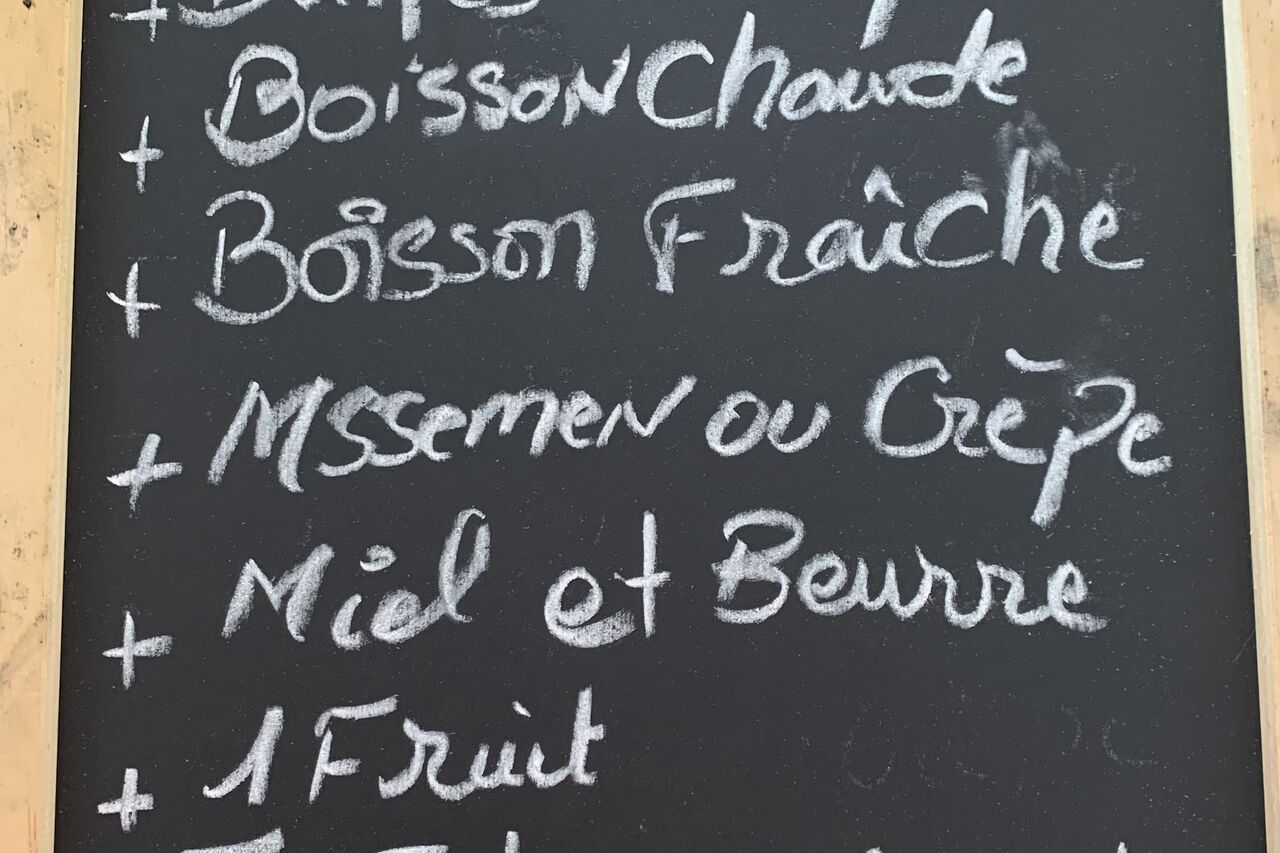 + Boisson Chaude
+ Boisson Fraîche
+ Mssemen ou Crèpe
+ Miel et Beurre
+ 1 Fruit